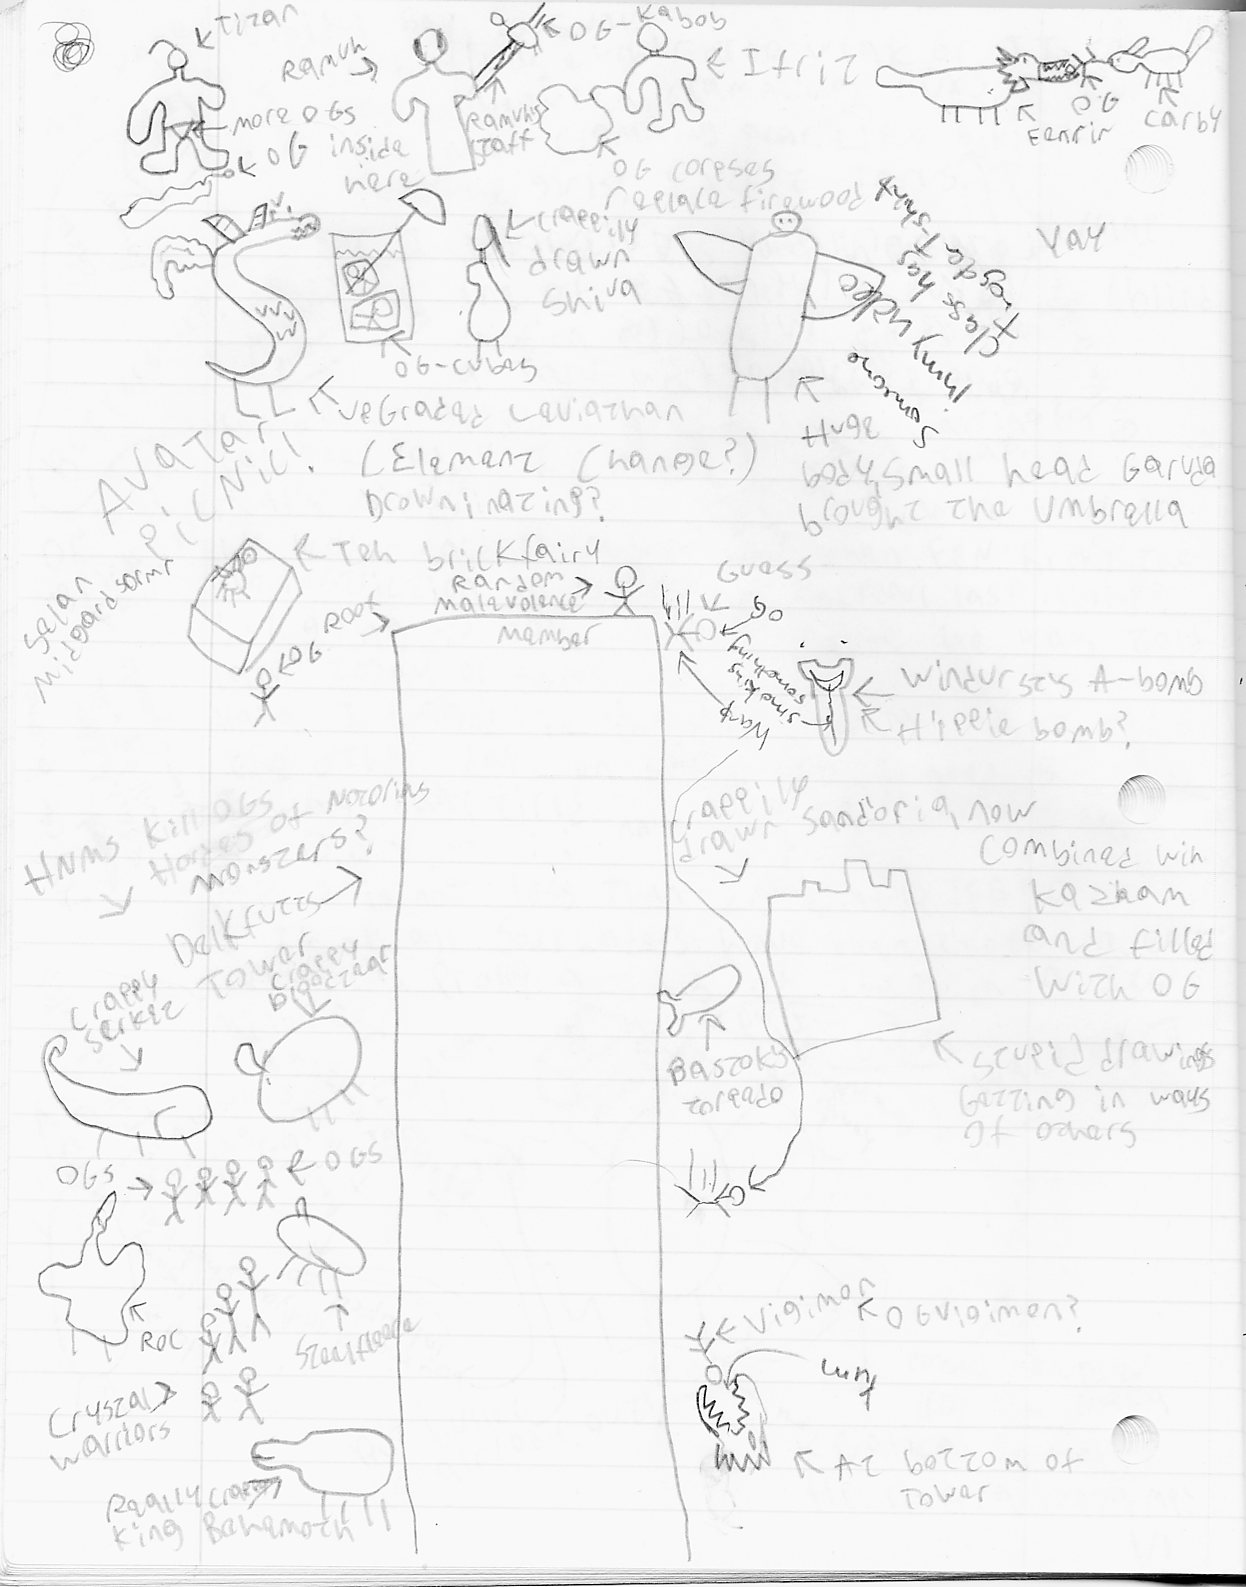 Titan
Ramuh
OG-Kabob
Ifrit
more OGs
OG inside
here
Ramuh's
staff
OG corpses
replace firewood
OG
Fenrir
Carby
Yay
Crappily
drawn
Shiva
OG-cubes
Upgraded Leviathan
(Element Change?)
Drowninating?
Avatar
Picnic!
Someone
in my video
class has
rosda t-shirt
Huge
body, small head Garuda
brought the Umbrella
Selan
Midgardsormr
Teh brickfairy
OG
Roof
Random
malevolence
member
Guess
OG
smoking
something
Warp
Windursts A-bomb
Hippie bomb?
HNMs Kill OGs
Hordes of Notorius
monsters?
Delkfutts
Tower
Crappy
Serket
Crappy
Bigadzaar
Crappily
drawn Sandoria, now
combined with
Kazham
and filled
with OG
Stupid drawings
Getting in ways
Of others
Bastoky
torpedo
OGs
OGs
Roc
Steelfleece
Crystal
warriors
Really crappy
King Behemoth
Vigimon
OGvigimon?
At bottom of
Tower